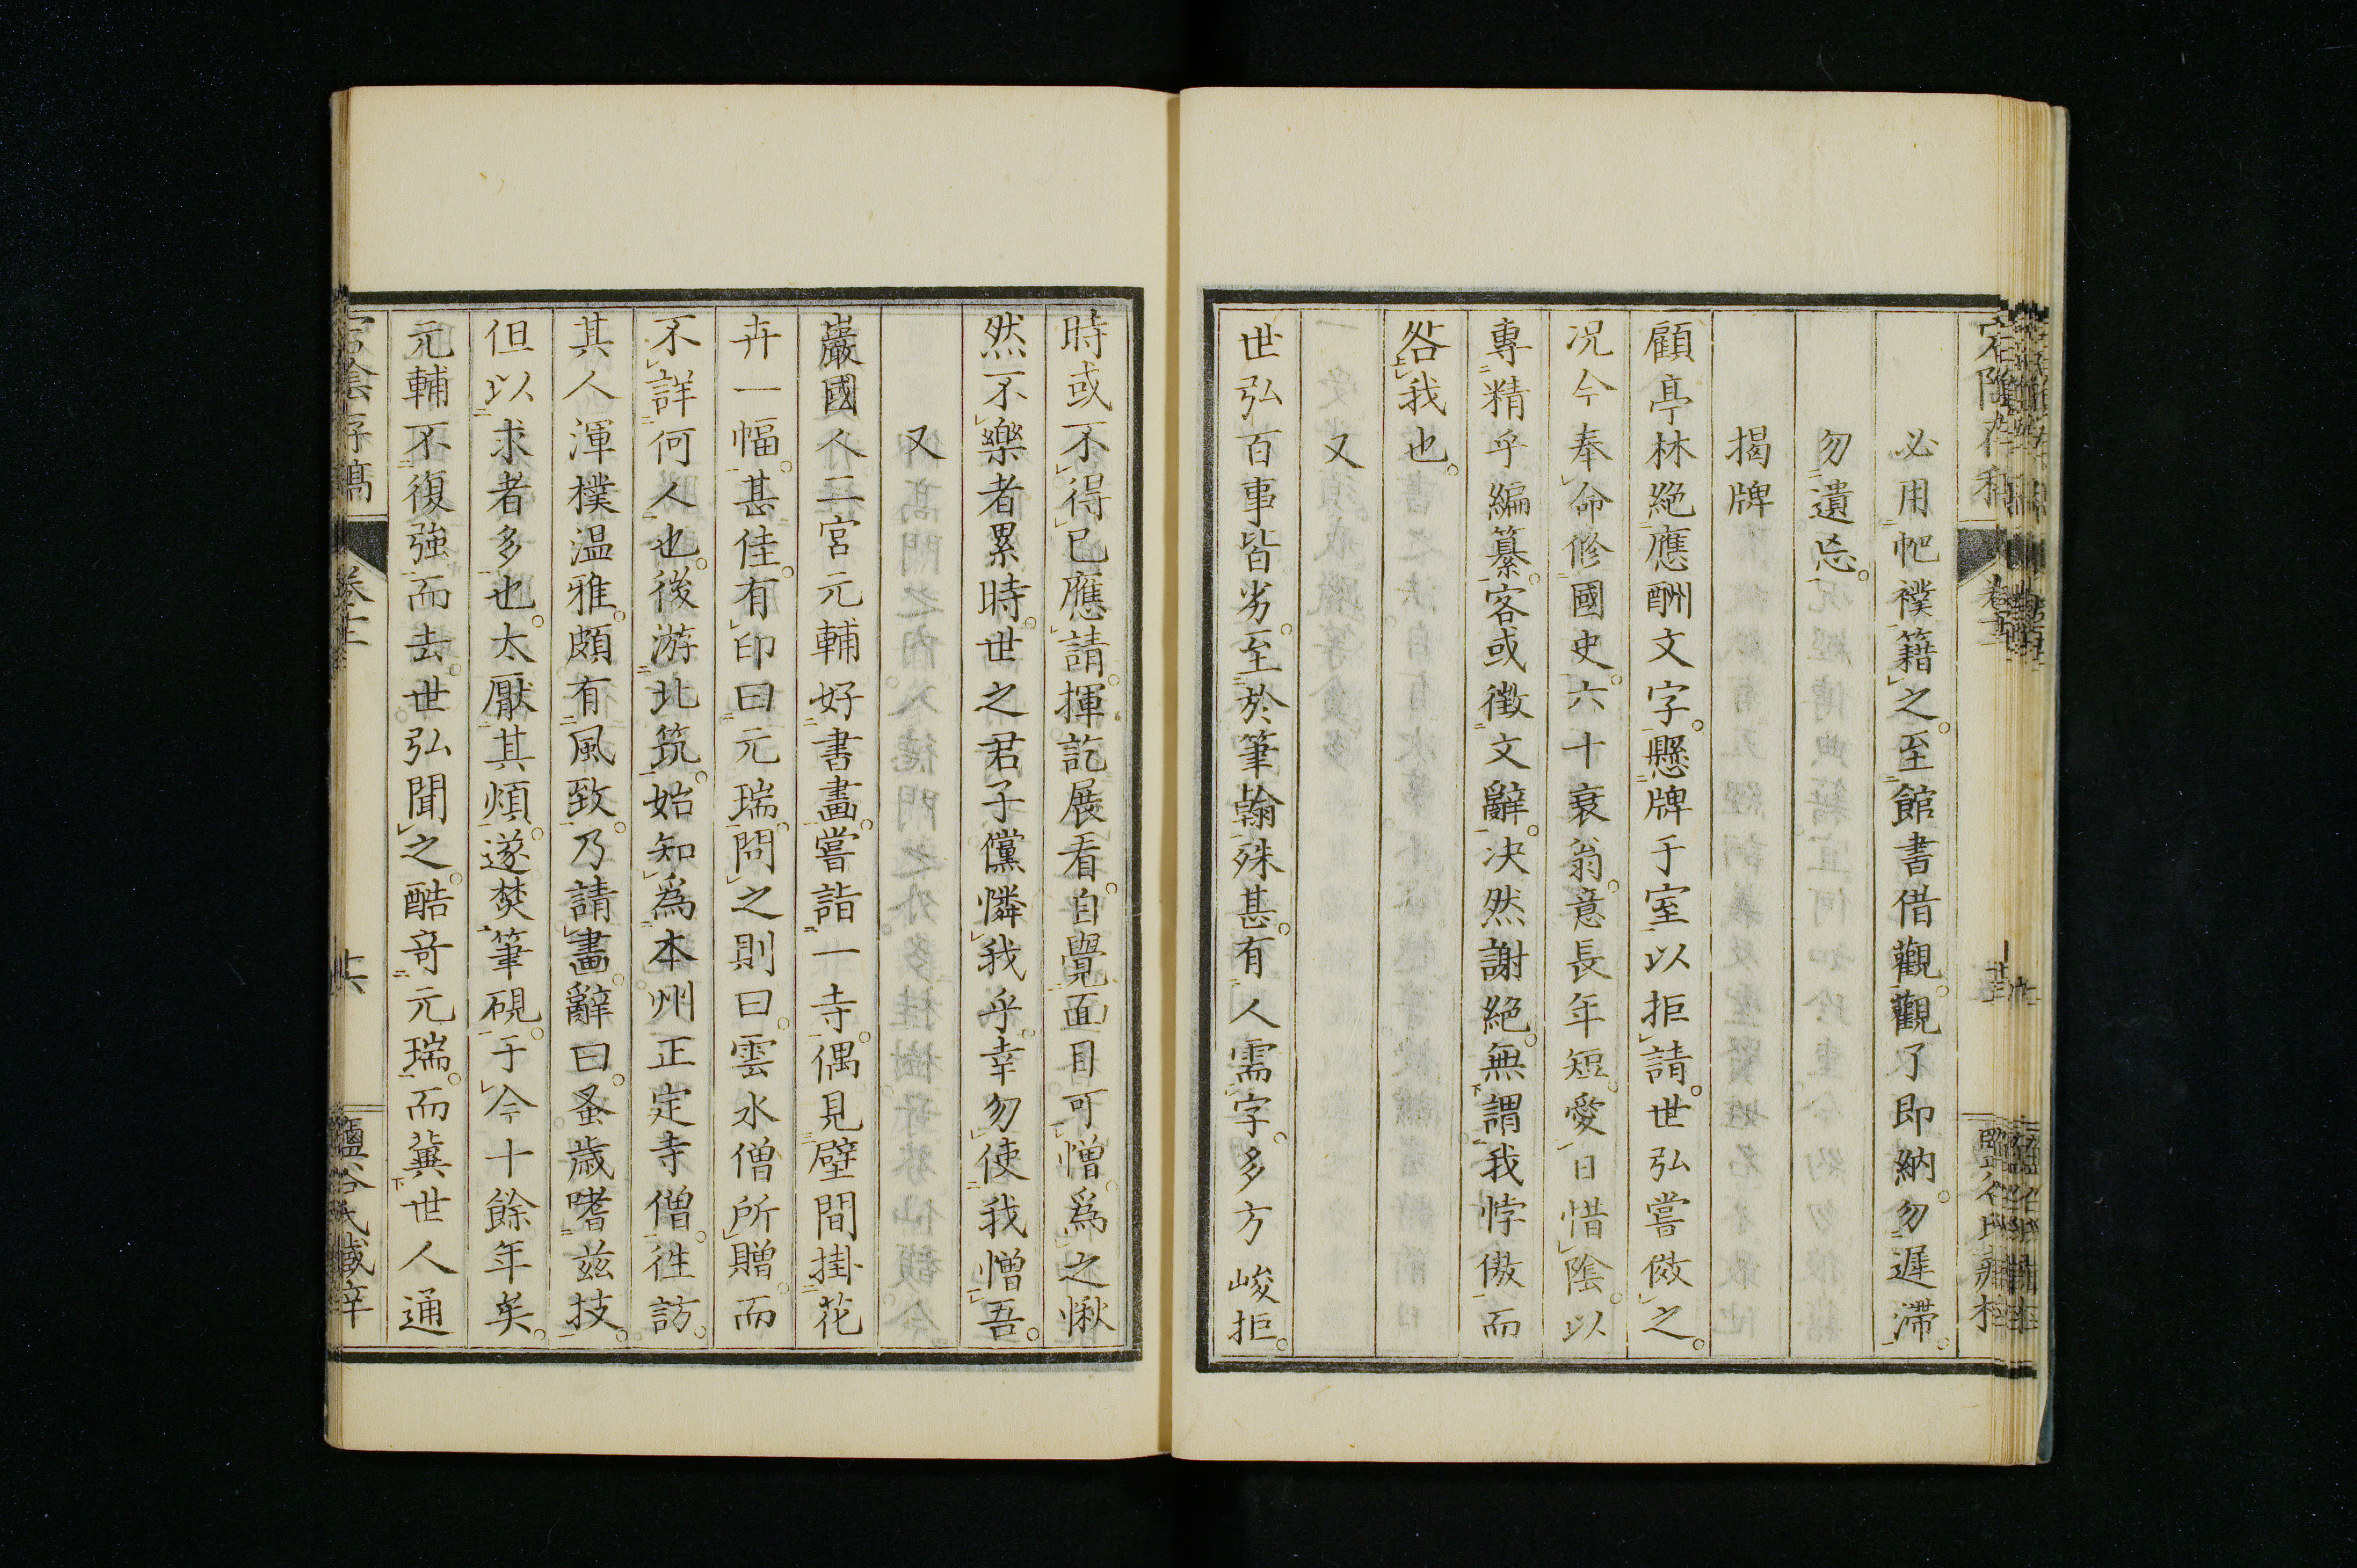 必用帊襆籍之。至館書借觀。觀了即納。勿遲滯。
勿遺忘。
揭牌
顧亭林絶應酬文字。懸牌于室以拒請。世弘嘗傚之。
况今奉命修國史。六十衰翁。意長年短。愛日惜陰。以
專精乎編纂。客或徵文辭。决然謝絕。無謂我悖傲而
咎我也。
又
世弘百事皆劣。至於筆翰殊甚。有人需字。多方峻拒。
時或不得已應請。揮訖展看。自覺面目可憎。爲之愀
然不樂者累時。世之君子儻憐我乎。幸勿使我憎吾。
又
巖國人二宮元輔好書畫。嘗詣一寺。偶見壁間掛花
卉一幅。甚佳。有印曰元瑞。問之則曰。雲水僧所贈。而
不詳何人也。後游北筑。始知爲本州正定寺僧。徃訪。
其人渾樸温雅。頗有風致。乃請畫。辭曰。蚤歲嗜茲技。
但以求者多也。太厭其煩。遂焚筆硯。于今十餘年矣。
元輔不復強而去。世弘聞之。酷奇元瑞。而冀世人通
宕陰存稿
卷十二
十六